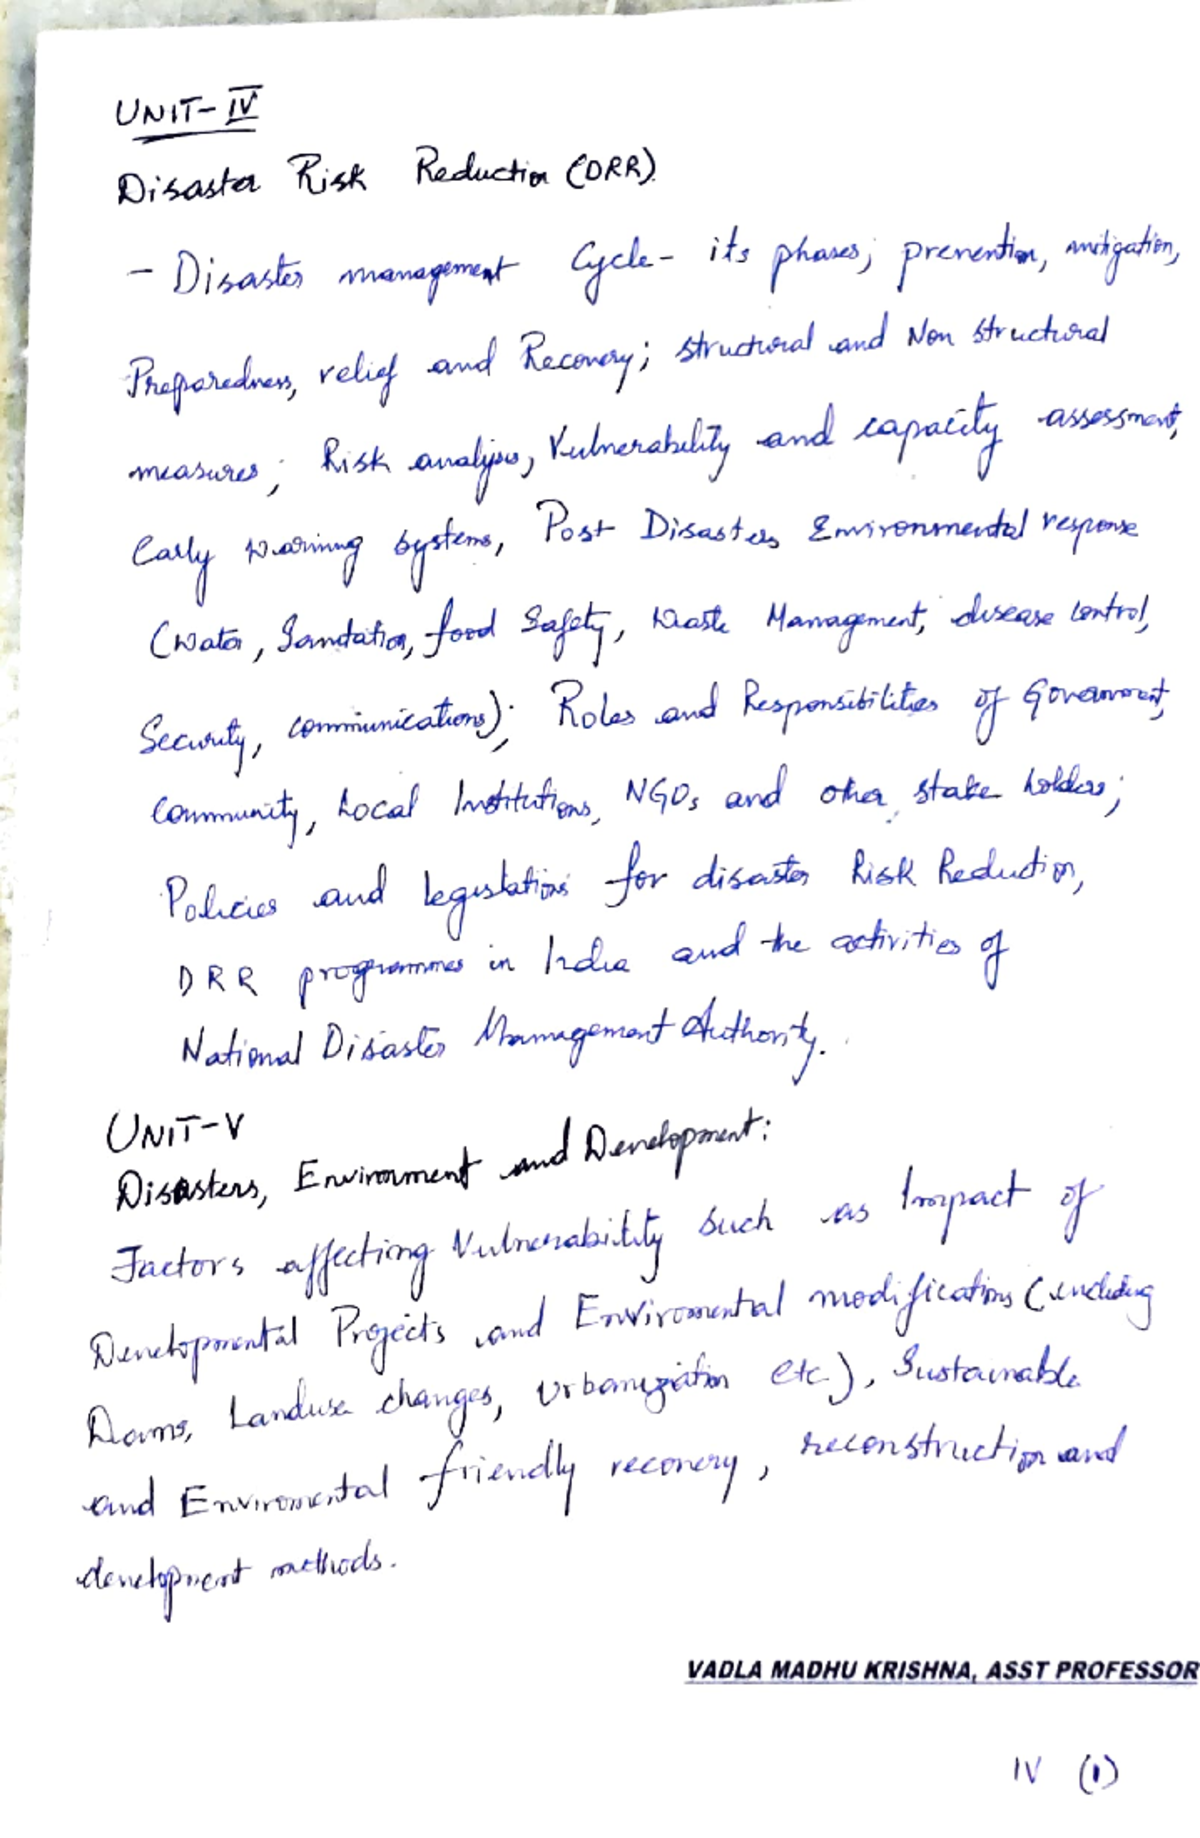 UNIT-IV
Disaster Risk Reduction (DRR)
- Disaster management Cycle - its phases; prevention, mitigation,
Preparedness, relief and Recovery; structural and Non structural
measures; Risk analysis, Vulnerability and capacity assessment,
Early warning systems, Post Disasters Environmental response
(Water, Sanitation, food Safety, Waste Management, disease control,
Security, communications); Roles and Responsibilities of Government,
Community, Local Institutions, NGOs and other stake holders;
Policies and legislations for disaster Risk Reduction,
DRR programmes in India and the activities of
National Disaster Management Authority.
UNIT-V
Disasters, Environment and Development:
Factors affecting Vulnerability such as Impact of
Developmental Projects and Enviromental modifications (including
Dams, Landuse changes, Urbanization etc.), Sustainable
and Enviromental friendly recovery, reconstruction and
development methods.
VADLA MADHU KRISHNA, ASST PROFESSOR
IV (1)